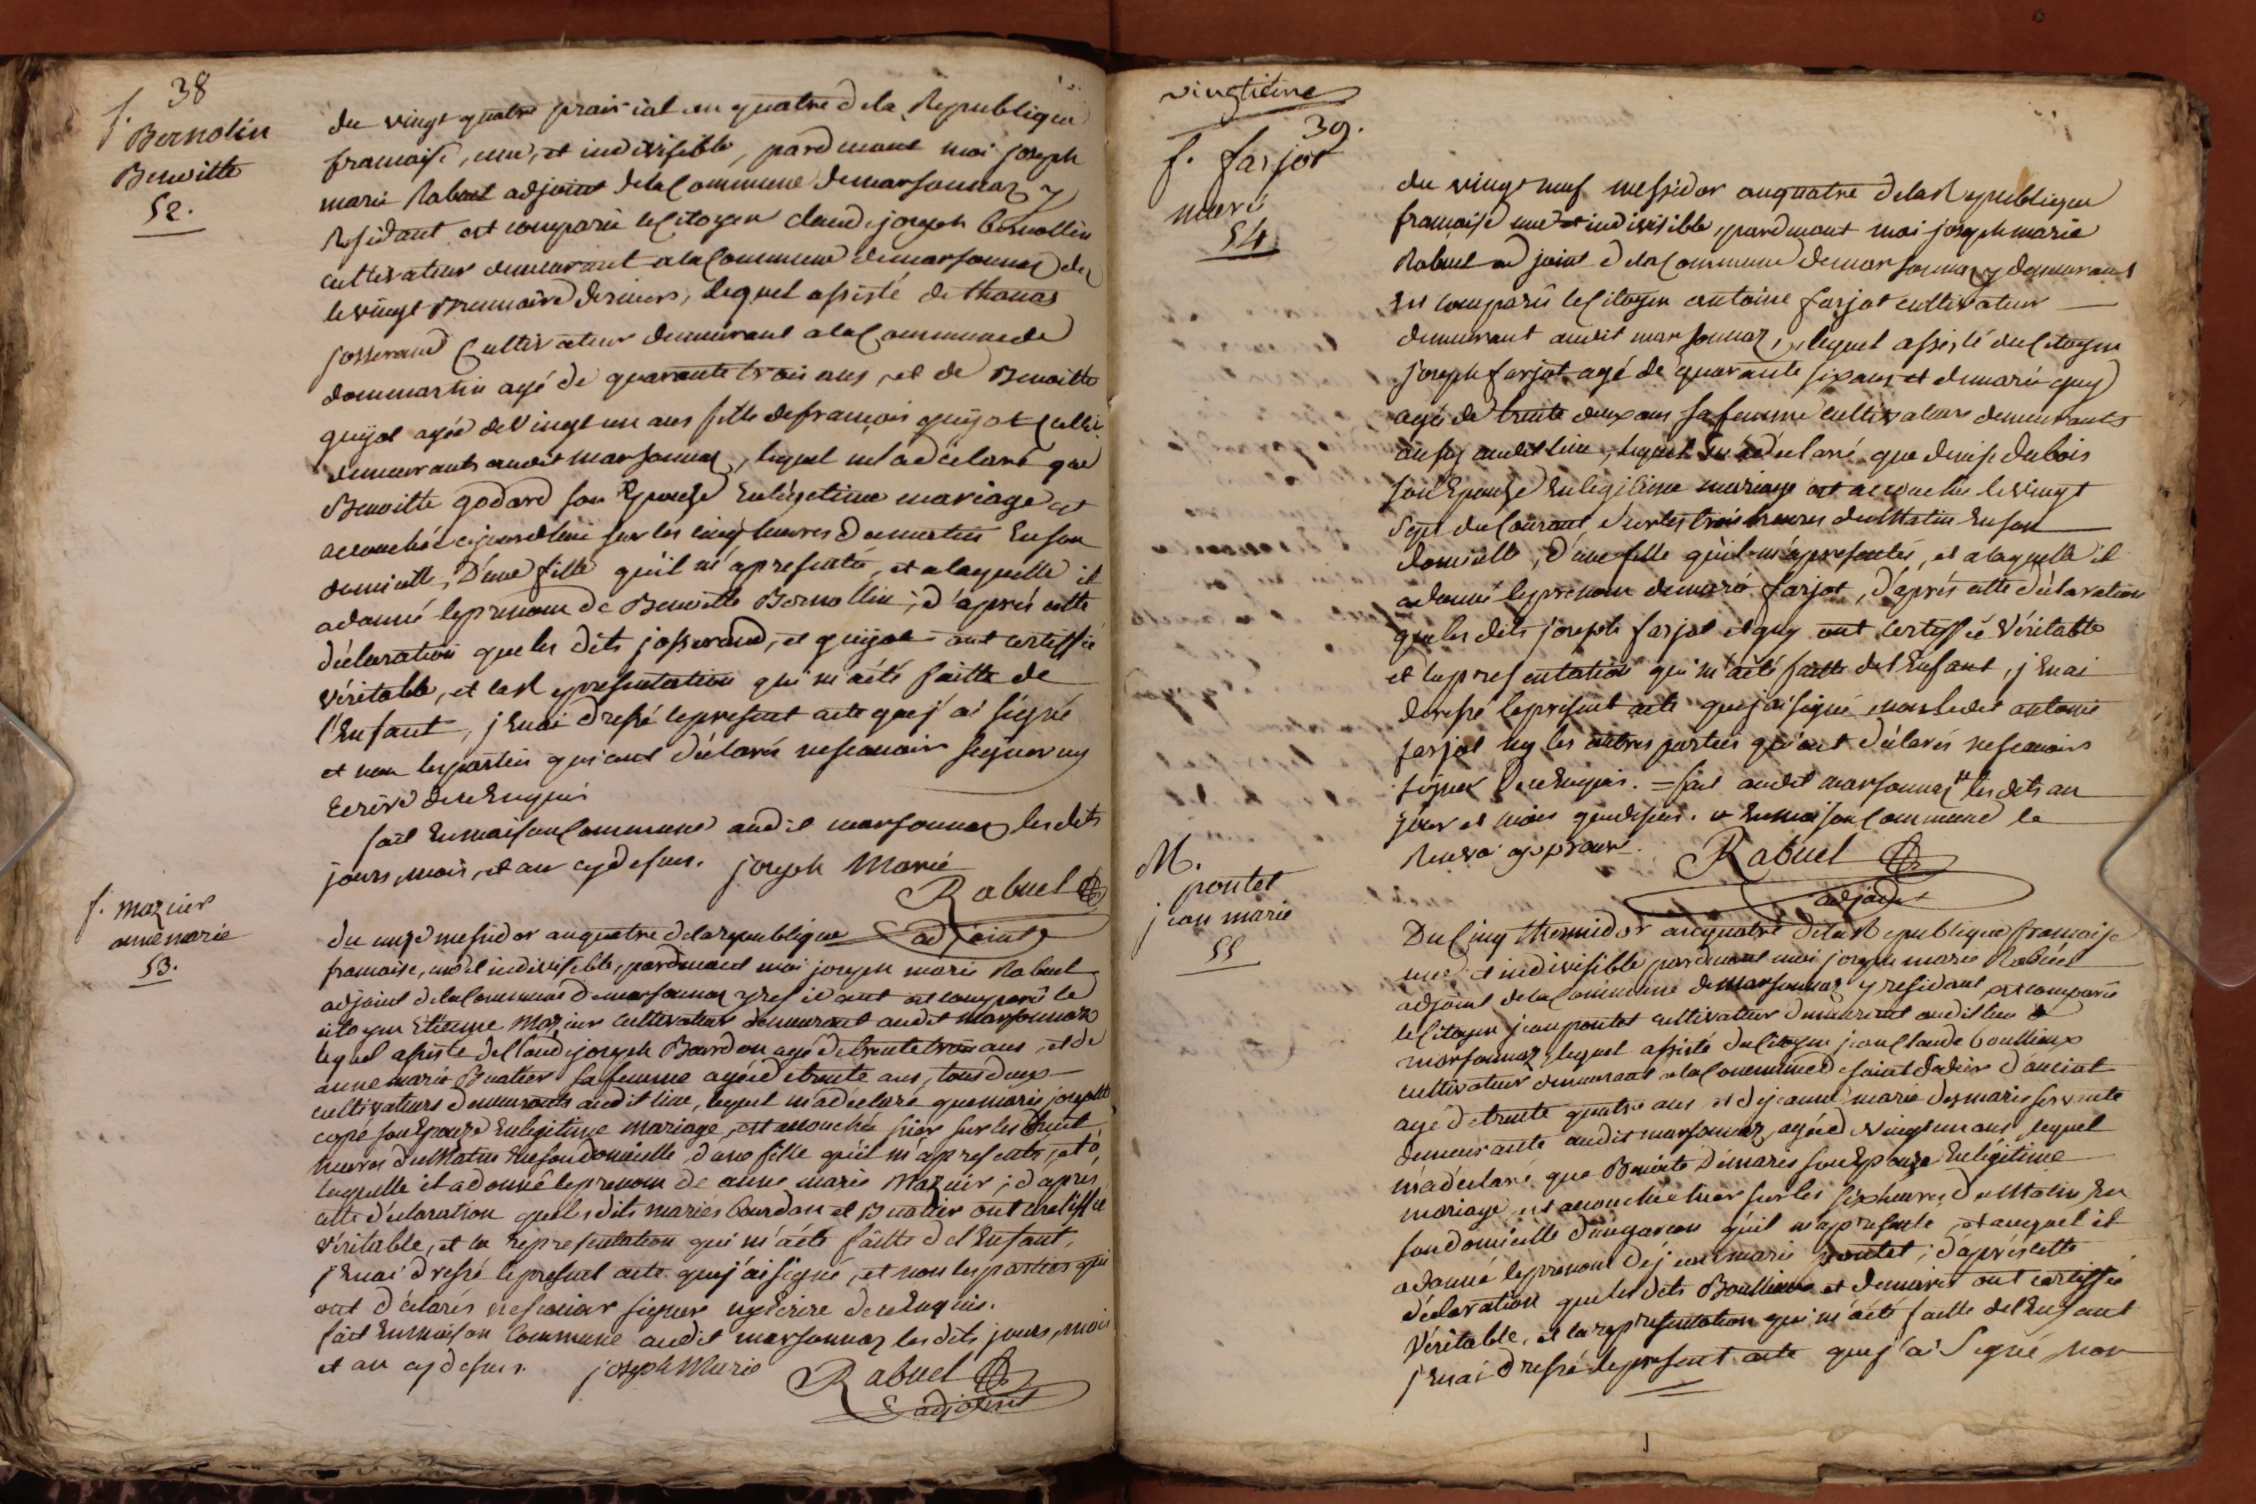 38
f.
Bernolin
Benoitte
52.
du vingt quatre prairial an quatre de la Republique
francaise, une, et indivisible, pardevant moi joseph
marie Rabuel adjoint de la Commune de marsonnaz y
Residant est comparu le Citoyen claude joseph bernollin
cultivateur demeurant a la Commune de marsonnaz
le vingt Brumaire dernier, lequel assisté de thomas
josserand Cultivateur demeurant a la Commune de
dommartin agé de quarante trois ans, et de Benoitte
guijot agée de vingt un ans fille de francois guijot
demeurants audit marsonnaz, lequel m'a déclaré que
Benoitte godard son Epouze En légetime mariage est
accouchée aujourdhui sur les cinq heures du matin En son
domicille, d'une fille qu'il m'a presentée, et a laquelle il
a donné le prenom de Benoitte Bernollin; d'aprés cette
déclaration que les dits josserand, et guijot ont certiffié
véritable, et la Representation qui m'a été faitte de
l'Enfant, j'Enai dressé le present acte que j'ai signé
et non les parties qui ont déclarés ne scavoir signer ny
Ecrire de ce Enquis
fait En maison Commune audit marsonnaz les dits
jours, mois, et an cy dessus. joseph Marie
Rabuel
adjoint
f. mazuir
anne marie
53.
du onze messidor an quatre de la republique
francaise, une et indivisible, pardevant moi joseph marie Rabuel
adjoint de la Commune de marsonnaz y residant est comparû le
citoyen Etienne Mazuir cultivateur demeurant audit marsonnaz
lequel assisté de Claude joseph Bourdon agé de trente trois ans, et de
anne marie Buatier sa femme agée de trente ans, tous deux
cultivateurs demeurants audit lieu, lequel m'a déclaré que marie josephte
copé son Epouze En legitime mariage, est accouchée hier sur les huit
heures du Matin En son domicille, d'une fille qu'il m'a presentée, et a
laquelle il a donné le prenom de anne marie Mazuir; d'aprés
cette déclaration que les dits mariés bourdon et Buatier ont certiffié
véritable, et la representation qui m'a été faitte de l'Enfant,
j'Enai dressé le present acte que j'ai signé, et non les parties qui
ont déclarés ne scavoir signer ny Ecrire de ce Enquis.
fait En maison Commune audit marsonnaz les dits jours, mois
et an cy dessus. joseph Marie
Rabuel
adjoint
vingtième
39.
f. farjot
marie
54
du vingt neuf messidor an quatre de la Republique
francaise une et indivisible, pardevant moi joseph marie
Rabuel adjoint de la Commune de marsonnaz y demeurant
Est comparû le Citoyen antoine farjot cultivateur
demeurant audit marsonnaz, lequel assisté du Citoyen
joseph farjot agé de quarante six ans et de marie guy
agée de trente deux ans sa femme cultivateurs demeurants
aussy audit lieu, lequel m'a déclaré que denise dubois
son Epouze En légitime mariage est accouchée le vingt
sept du Courant sur les trois heures du Matin En son
domicille, d'une fille qu'il m'a presentée, et a laquelle il
a donné le prenom de marie farjot, d'aprés cette déclaration
que les dits joseph farjot et guy ont certiffié véritable
et la presentation qui m'a été faitte de l'Enfant, j'Enai
dressé le present acte que j'ai signé, non ledit antoine
farjot ny les autres parties qui ont déclarés ne scavoir
signer de ce Enquis. = fait audit marsonnaz # les dits an
jour et mois que dessus. # En maison Commune le
Renvoi approuvé.
Rabuel
adjoint
M.
pontet
jean marie
55
Du Cinq thermidor an quatre de la Republique francaise
une et indivisible pardevant moi joseph marie Rabuel
adjoint de la Commune de marsonnaz y residant est comparû
le Citoyen jean pontet cultivateur demeurant audit lieu de
marsonnaz, lequel assisté du Citoyen jean claude boullieux
cultivateur demeurant a la Commune de saint didier d'auciat
agé de trente quatre ans et de jeanne marie desmaris servante
demeurante audit marsonnaz, agée de vingt un ans, lequel
m'a déclaré que Benoite Démaris son Epouze En légitime
mariage est accouchée hier sur les six heures du Matin En
son domicille d'un garcon qu'il m'a presenté, et auquel il
a donné le prénom de jean marie pontet; d'aprés cette
déclaration que les dits Boullieux et demaris ont certiffié
véritable, et la representation qui m'a été faitte de l'Enfant
j'Enai dressé le present acte que j'ai Signé, non